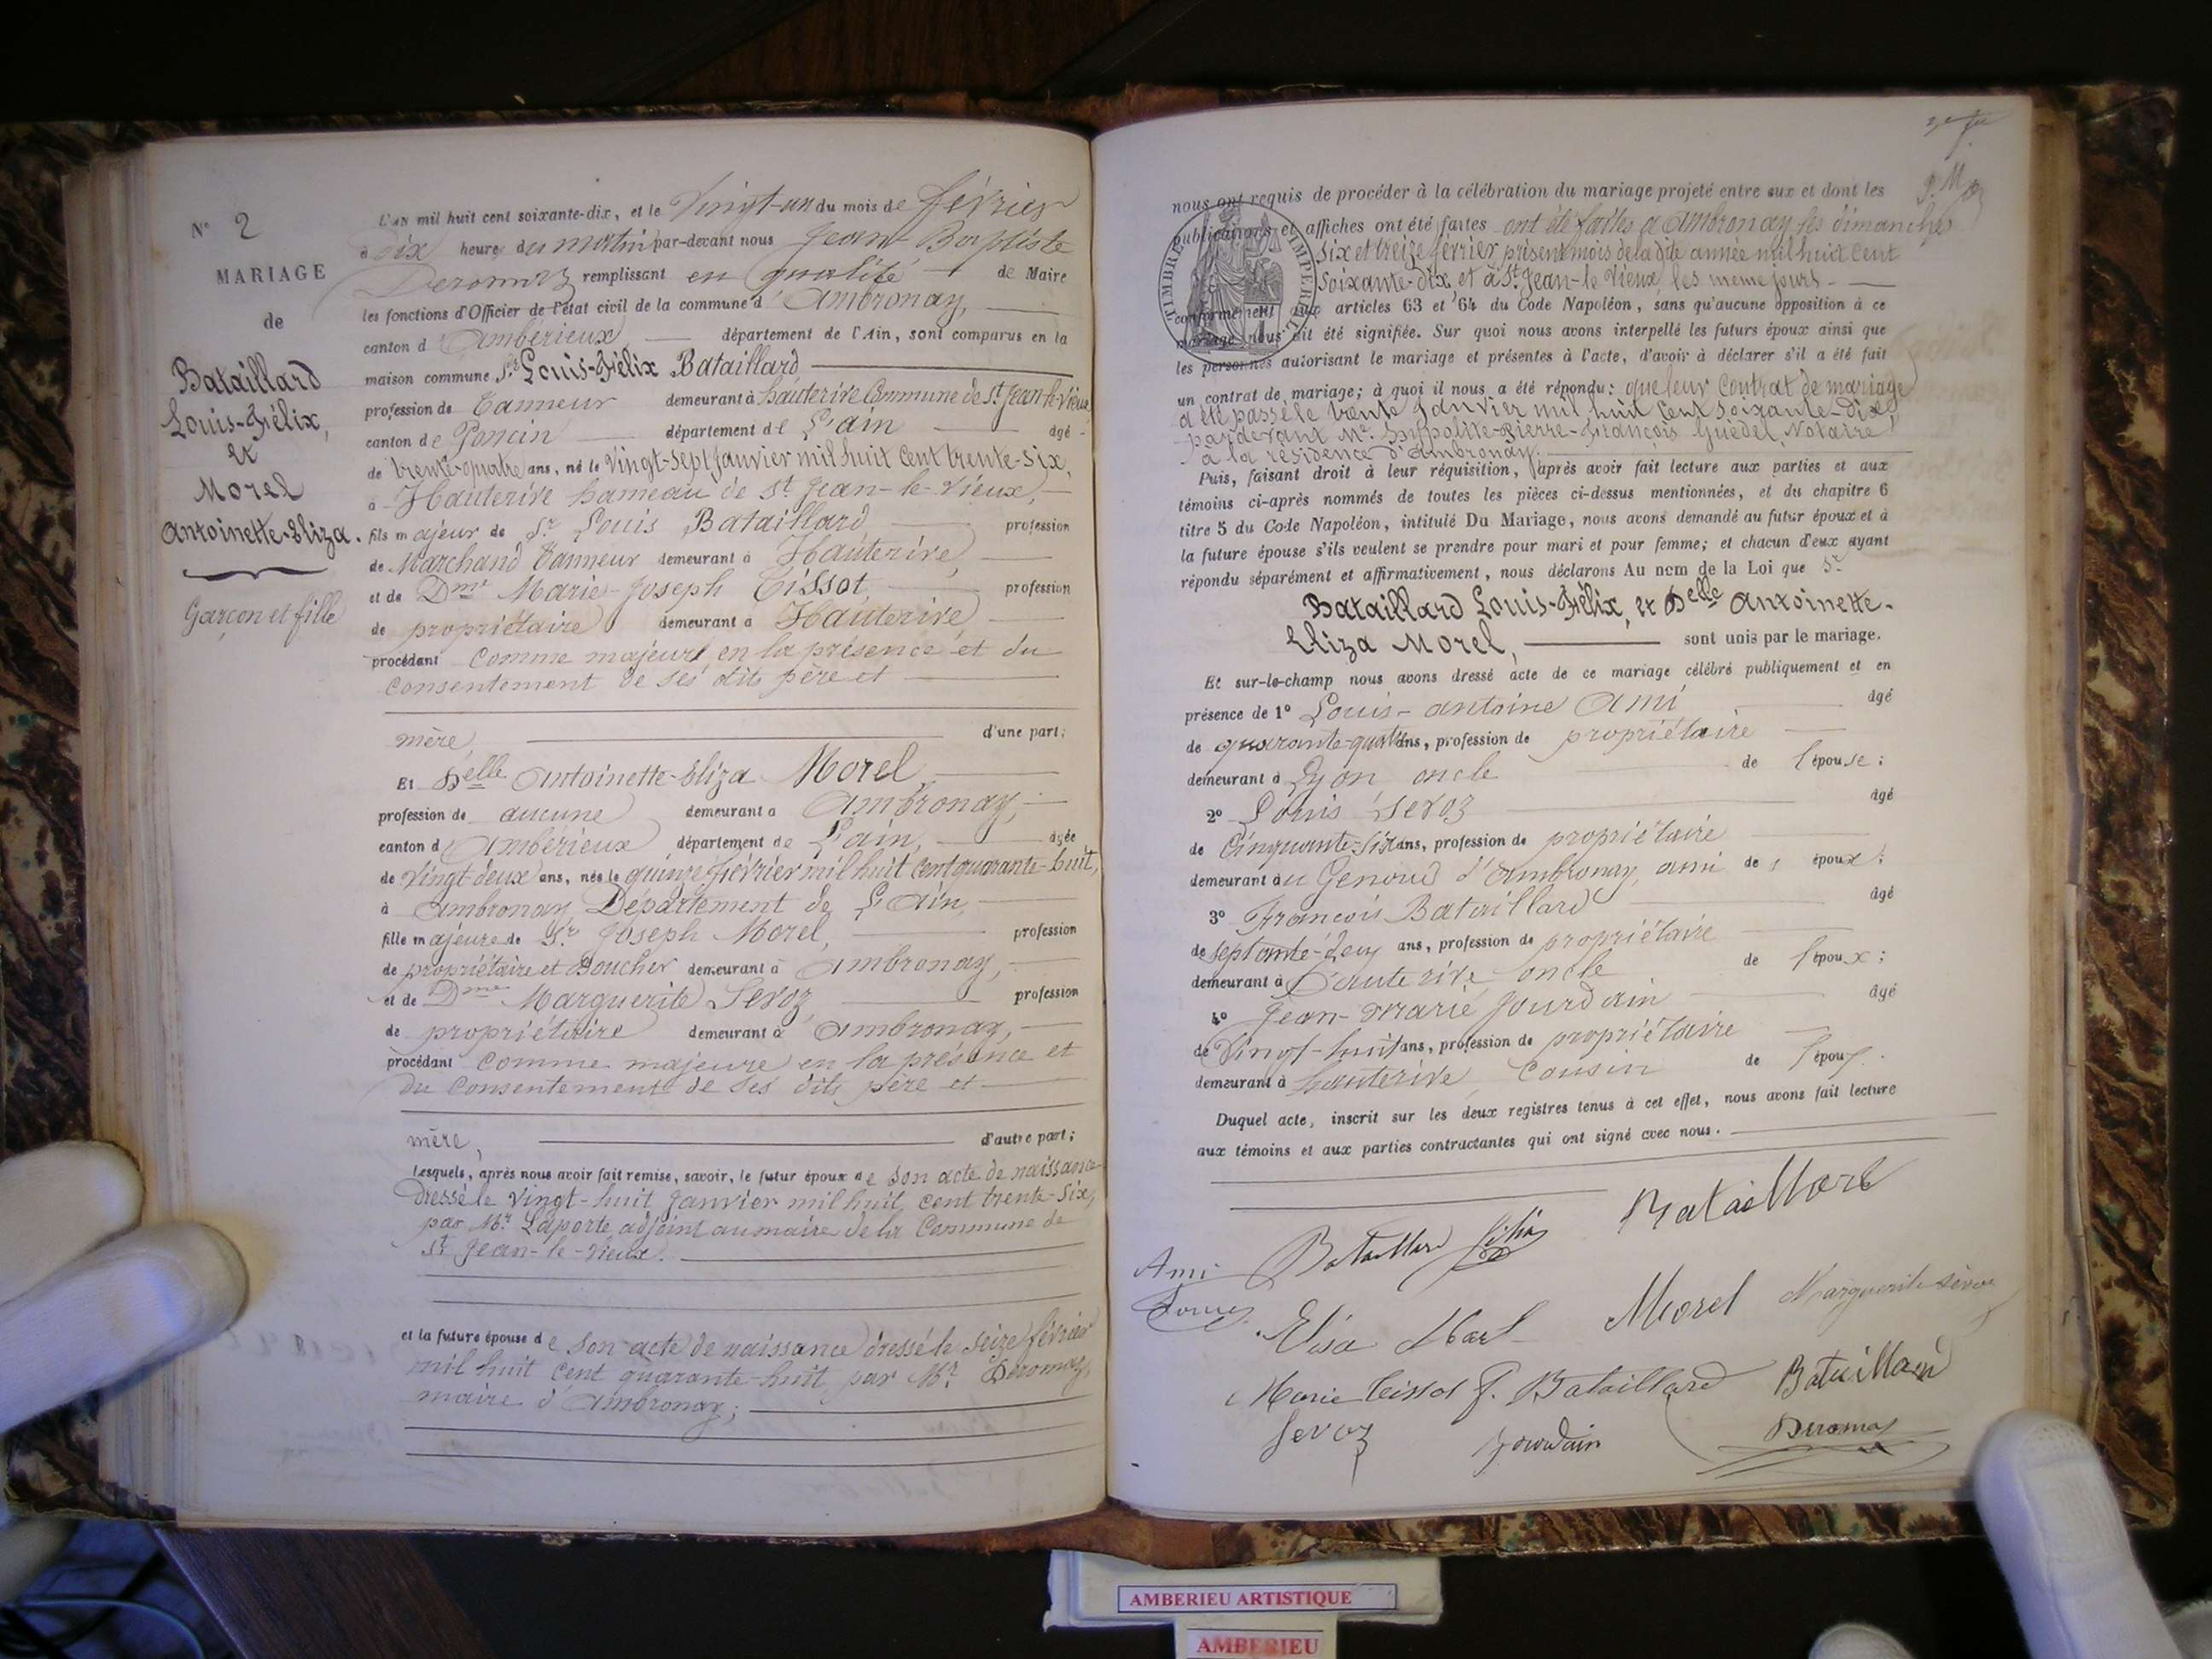 N° 2
MARIAGE
de
Bataillard
Louis-Félix,
et
Morel
Antoinette-Eliza.
Garçon et fille
L'AN mil huit cent soixante-dix, et le Vingt-un du mois de février
à dix heure du matin par-devant nous Jean-Baptiste
Deromaz remplissant en qualité de Maire
les fonctions d'Officier de l'état civil de la commune d'Ambronay,
canton d'Ambérieux département de l'Ain, sont comparus en la
maison commune Sr Louis-Félix Bataillard
profession de Tanneur demeurant à hauterive Commune de St Jean-le-Vieux,
canton de Poncin département de L'ain âgé
de trente-quatre ans, né le Vingt-sept janvier mil huit cent trente-six,
à Hauterive hameau de St Jean-le-Vieux,
fils majeur de Sr Louis Bataillard profession
de Marchand Tanneur demeurant à Hauterive,
et de Dme Marie-Joseph Tissot, profession
de propriétaire demeurant à Hauterive,
procédant comme majeur en la présence et du
consentement de ses dits père et
mère, d'une part;
Et Delle Antoinette-Eliza Morel
profession de aucune demeurant à Ambronay,
canton d'Ambérieux département de L'ain, âgée
de Vingt-deux ans, née le quinze février mil huit cent quarante-huit,
à Ambronay Département de L'Ain
fille majeure de Sr Joseph Morel, profession
de propriétaire et Boucher demeurant à Ambronay,
et de Dme Marguerite Sevoz, profession
de propriétaire demeurant à Ambronay,
procédant comme majeure en la présence et
du consentement de ses dits père et
mère, d'autre part;
Lesquels, après nous avoir fait remise, savoir, le futur époux de son acte de naissance
dressé le vingt-huit janvier mil huit cent trente-six,
par Mr Laporte adjoint au maire de la Commune de
St Jean-le-Vieux.
et la future épouse de son acte de naissance dressé le seize février
mil huit cent quarante-huit par Mr Deromaz,
maire d'Ambronay;
nous ont requis de procéder à la célébration du mariage projeté entre eux et dont les
publications et affiches ont été faites ont été faites à Ambronay les dimanches
six et treize février présent mois de la dite année mil huit cent
soixante-dix et à St Jean-le-Vieux, les même jours
TIMBRE IMPERIAL
conformément aux articles 63 et 64 du Code Napoléon, sans qu'aucune opposition à ce
mariage nous ait été signifiée. Sur quoi nous avons interpellé les futurs époux ainsi que
les personnes autorisant le mariage et présentes à l'acte, d'avoir à déclarer s'il a été fait
un contrat de mariage; à quoi il nous a été répondu: que leur contrat de mariage
a été passé le trente janvier mil huit cent soixante-dix
pardevant Me Hyppolite-Pierre-François Guédel Notaire
à la résidence d'Ambronay.
Puis, faisant droit à leur réquisition, après avoir fait lecture aux parties et aux
témoins ci-après nommés de toutes les pièces ci-dessus mentionnées, et du chapitre 6
titre 5 du Code Napoléon, intitulé Du Mariage, nous avons demandé au futur époux et à
la future épouse s'ils veulent se prendre pour mari et pour femme; et chacun d'eux ayant
répondu séparément et affirmativement, nous déclarons Au nom de la Loi que Sr
Bataillard Louis-Félix, et Delle Antoinette-
Eliza Morel, sont unis par le mariage.
Et sur-le-champ nous avons dressé acte de ce mariage célébré publiquement et en
présence de 1° Louis-antoine Ami âgé
de quarante-quatre ans, profession de propriétaire
demeurant à Lyon oncle de l'épouse;
2° Louis Sevoz âgé
de Cinquante-six ans, profession de propriétaire
demeurant au Genoud d'Ambronay, ami de l'époux;
3° François Bataillard âgé
de septante-deux ans, profession de propriétaire
demeurant à hauterive oncle de l'époux;
4° Jean-Marie Jourdain âgé
de Vingt-huit ans, profession de propriétaire
demeurant à hauterive Cousin de l'époux.
Duquel acte, inscrit sur les deux registres tenus à cet effet, nous avons fait lecture
aux témoins et aux parties contractantes qui ont signé avec nous.
Bataillard
Bataillard félix
Ami
Louis
Elisa Morel Morel Marguerite Sévoz
Marie Tissot F. Bataillard Bataillard
Sevoz Jourdain Deromaz
AMBERIEU ARTISTIQUE
AMBERIEU